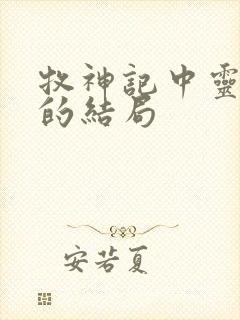 牧神記中靈
的結局
安若夏